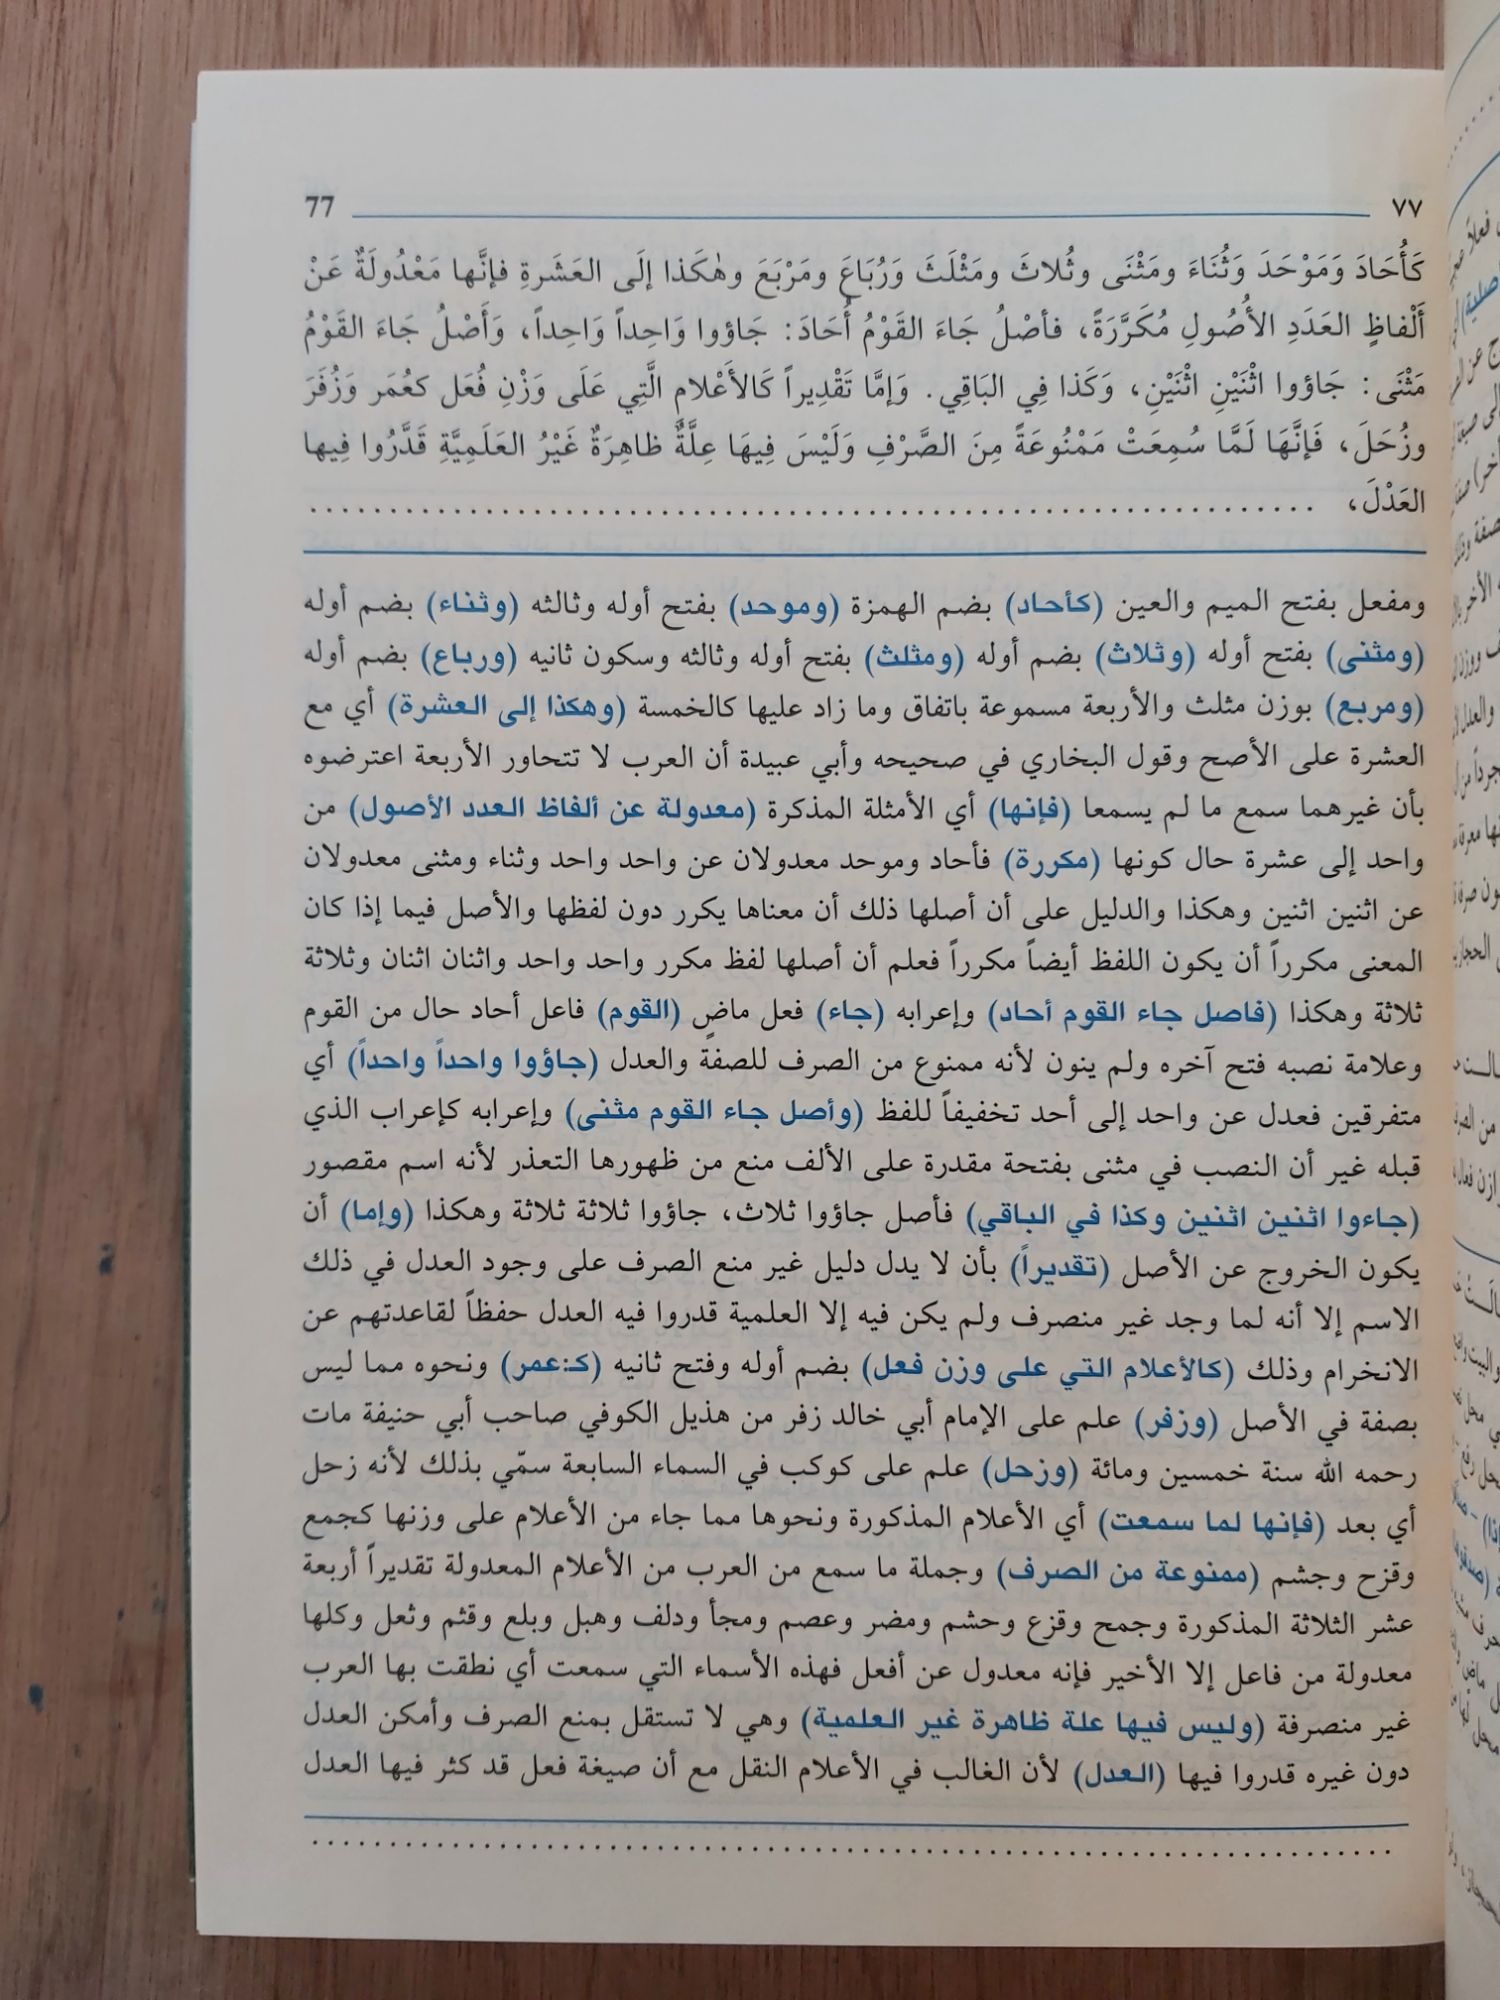 ٧٧ 77
كَأُحَادَ وَمَوْحَدَ وَثُنَاءَ ومَثْنَى وثُلاثَ ومَثْلَثَ وَرُبَاعَ ومَرْبَعَ وهٰكَذا إلَى العَشَرَةِ فإنَّها مَعْدُولَةٌ عَنْ
أَلْفاظِ العَدَدِ الأُصُولِ مُكَرَّرَةً، فأصْلُ جَاءَ القَوْمُ أُحَادَ: جَاؤوا وَاحِداً وَاحِداً، وَأَصْلُ جَاءَ القَوْمُ
مَثْنَى: جَاؤوا اثْنَيْنِ اثْنَيْنِ، وَكَذا فِي البَاقِي. وَإمَّا تَقْدِيراً كَالأَعْلامِ الَّتِي عَلَى وَزْنِ فُعَل كعُمَر وَزُفَرَ
وزُحَلَ، فَإنَّهَا لَمَّا سُمِعَتْ مَمْنُوعَةً مِنَ الصَّرْفِ وَلَيْسَ فِيهَا عِلَّةٌ ظاهِرَةٌ غَيْرُ العَلَمِيَّةِ قَدَّرُوا فِيها
العَدْلَ، ................................................................
ومفعل بفتح الميم والعين (كأحاد) بضم الهمزة (وموحد) بفتح أوله وثالثه (وثناء) بضم أوله
(ومثنى) بفتح أوله (وثلاث) بضم أوله (ومثلث) بفتح أوله وثالثه وسكون ثانيه (ورباع) بضم أوله
(ومربع) بوزن مثلث والأربعة مسموعة باتفاق وما زاد عليها كالخمسة (وهكذا إلى العشرة) أي مع
العشرة على الأصح وقول البخاري في صحيحه وأبي عبيدة أن العرب لا تتحاور الأربعة اعترضوه
بأن غيرهما سمع ما لم يسمعا (فإنها) أي الأمثلة المذكرة (معدولة عن ألفاظ العدد الأصول) من
واحد إلى عشرة حال كونها (مكررة) فأحاد وموحد معدولان عن واحد واحد وثناء ومثنى معدولان
عن اثنين اثنين وهكذا والدليل على أن أصلها ذلك أن معناها يكرر دون لفظها والأصل فيما إذا كان
المعنى مكرراً أن يكون اللفظ أيضاً مكرراً فعلم أن أصلها لفظ مكرر واحد واحد واثنان اثنان وثلاثة
ثلاثة وهكذا (فاصل جاء القوم أحاد) وإعرابه (جاء) فعل ماضٍ (القوم) فاعل أحاد حال من القوم
وعلامة نصبه فتح آخره ولم ينون لأنه ممنوع من الصرف للصفة والعدل (جاؤوا واحداً واحداً) أي
متفرقين فعدل عن واحد إلى أحد تخفيفاً للفظ (وأصل جاء القوم مثنى) وإعرابه كإعراب الذي
قبله غير أن النصب في مثنى بفتحة مقدرة على الألف منع من ظهورها التعذر لأنه اسم مقصور
(جاءوا اثنين اثنين وكذا في الباقي) فأصل جاؤوا ثلاث، جاؤوا ثلاثة ثلاثة وهكذا (وإما) أن
يكون الخروج عن الأصل (تقديراً) بأن لا يدل دليل غير منع الصرف على وجود العدل في ذلك
الاسم إلا أنه لما وجد غير منصرف ولم يكن فيه إلا العلمية قدروا فيه العدل حفظاً لقاعدتهم عن
الانخرام وذلك (كالأعلام التي على وزن فعل) بضم أوله وفتح ثانيه (كـ:عمر) ونحوه مما ليس
بصفة في الأصل (وزفر) علم على الإمام أبي خالد زفر من هذيل الكوفي صاحب أبي حنيفة مات
رحمه الله سنة خمسين ومائة (وزحل) علم على كوكب في السماء السابعة سمّي بذلك لأنه زحل
أي بعد (فإنها لما سمعت) أي الأعلام المذكورة ونحوها مما جاء من الأعلام على وزنها كجمع
وقزح وجشم (ممنوعة من الصرف) وجملة ما سمع من العرب من الأعلام المعدولة تقديراً أربعة
عشر الثلاثة المذكورة وجمح وقزع وحشم ومضر وعصم ومجأ ودلف وهبل وبلع وقثم وثعل وكلها
معدولة من فاعل إلا الأخير فإنه معدول عن أفعل فهذه الأسماء التي سمعت أي نطقت بها العرب
غير منصرفة (وليس فيها علة ظاهرة غير العلمية) وهي لا تستقل بمنع الصرف وأمكن العدل
دون غيره قدروا فيها (العدل) لأن الغالب في الأعلام النقل مع أن صيغة فعل قد كثر فيها العدل
................................................................